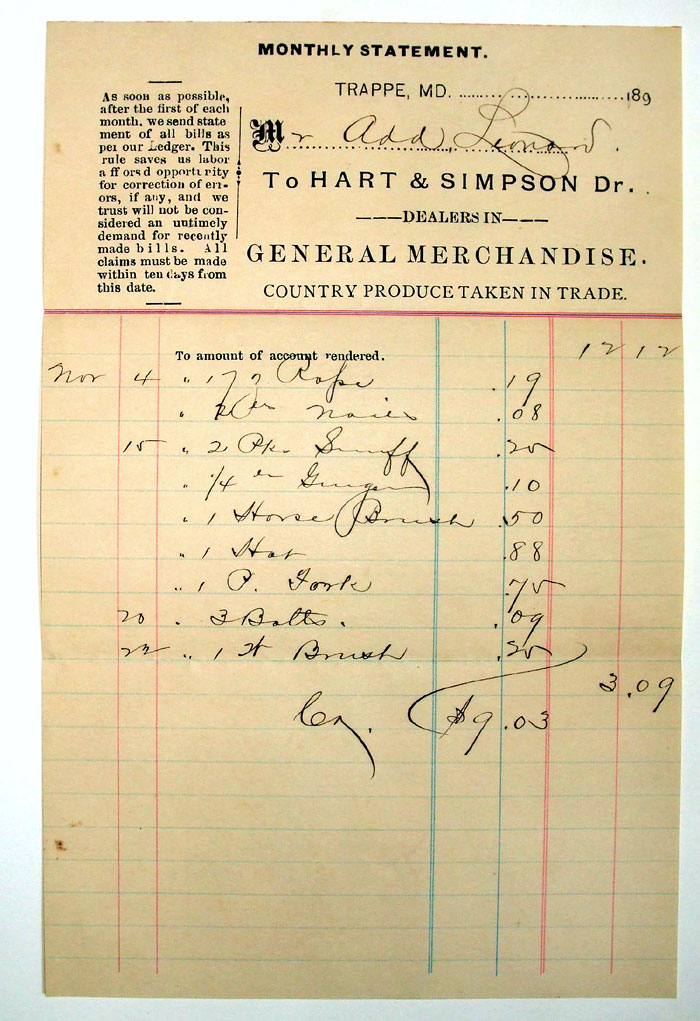 MONTHLY STATEMENT.
TRAPPE, MD. 189
Mr Add. Leonard.
To HART & SIMPSON Dr.
DEALERS IN
GENERAL MERCHANDISE.
COUNTRY PRODUCE TAKEN IN TRADE.
As soon as possible,
after the first of each
month, we send state
ment of all bills as
per our Ledger. This
rule saves us labor
affords opportunity
for correction of err-
ors, if any, and we
trust will not be con-
sidered an untimely
demand for recently
made bills. All
claims must be made
within ten days from
this date.
To amount of account rendered. 12 12
Nov 4 " Rope .19
" nails .08
15 " 2 Pk. Snuff .25
" 1/4 Ginger .10
" 1 Horse Brush .50
" 1 Hat .88
" 1 P. Fork .75
20 " 3 Bolts. .09
22 " 1 W Brush .25
3.09
Cr. $9.03